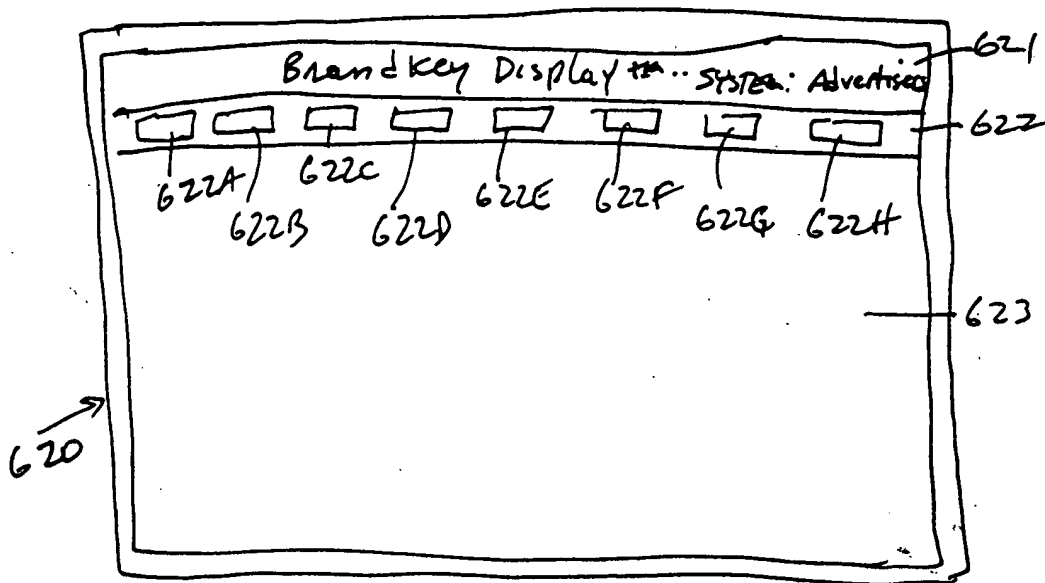 BrandKey Display TM .. SYSTEM: Advertiser
621
622
622A 622B 622C 622D 622E 622F 622G 622H
623
620